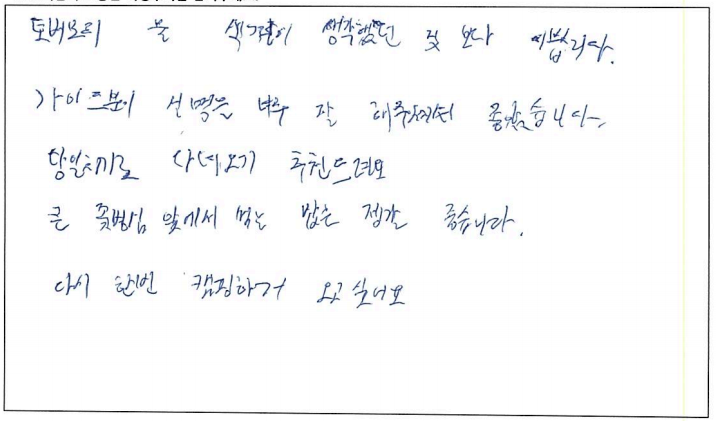 토버모리 물 색깔이 생각했던 것 보다 이쁩니다.
가이드분이 설명을 너무 잘 해주셔서 좋았습니다
당일치기로 다녀오기 추천드려요
큰 꽃병섬 앞에서 먹는 밥은 정말 좋습니다.
다시 한번 캠핑하러 오고 싶어요